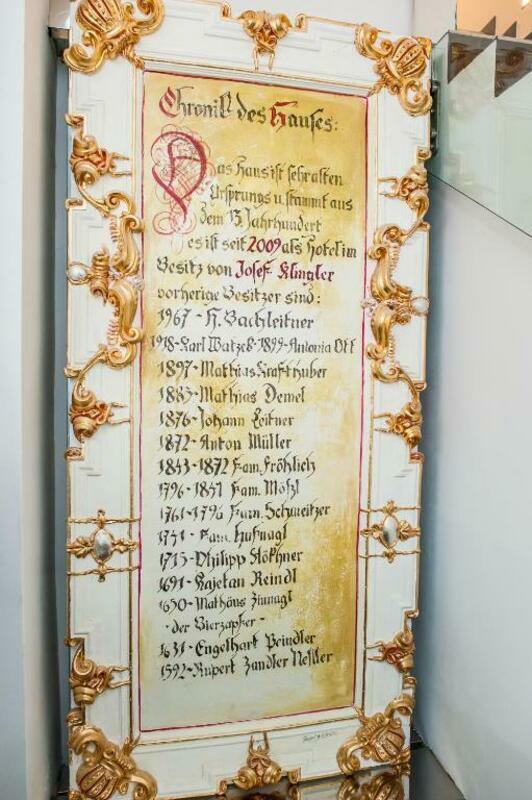 Chronik des Hauses:
Das Haus ist sehr alten
Ursprungs u. stammt aus
dem 13. Jahrhundert
es ist seit 2009 als Hotel im
Besitz von Josef Klingler
vorherige Besitzer sind:
1967 - H. Bachleitner
1918 - Karl Watzek - 1899 - Antonia Ott
1897 - Mathias Krafthuber
1883 - Mathias Demel
1876 - Johann Leitner
1872 - Anton Müller
1843 - 1872 Fam. Fröhlich
1796 - 1841 Fam. Mößl
1761 - 1796 Fam. Schweitzer
1751 - Fam. Hufnagl
1715 - Philipp
1691 - Kajetan Reindl
1650 - Mathäus Zinnagl
- der Bierzapfer -
1631 - Engelhart Peindler
1592 - Rupert Zandler